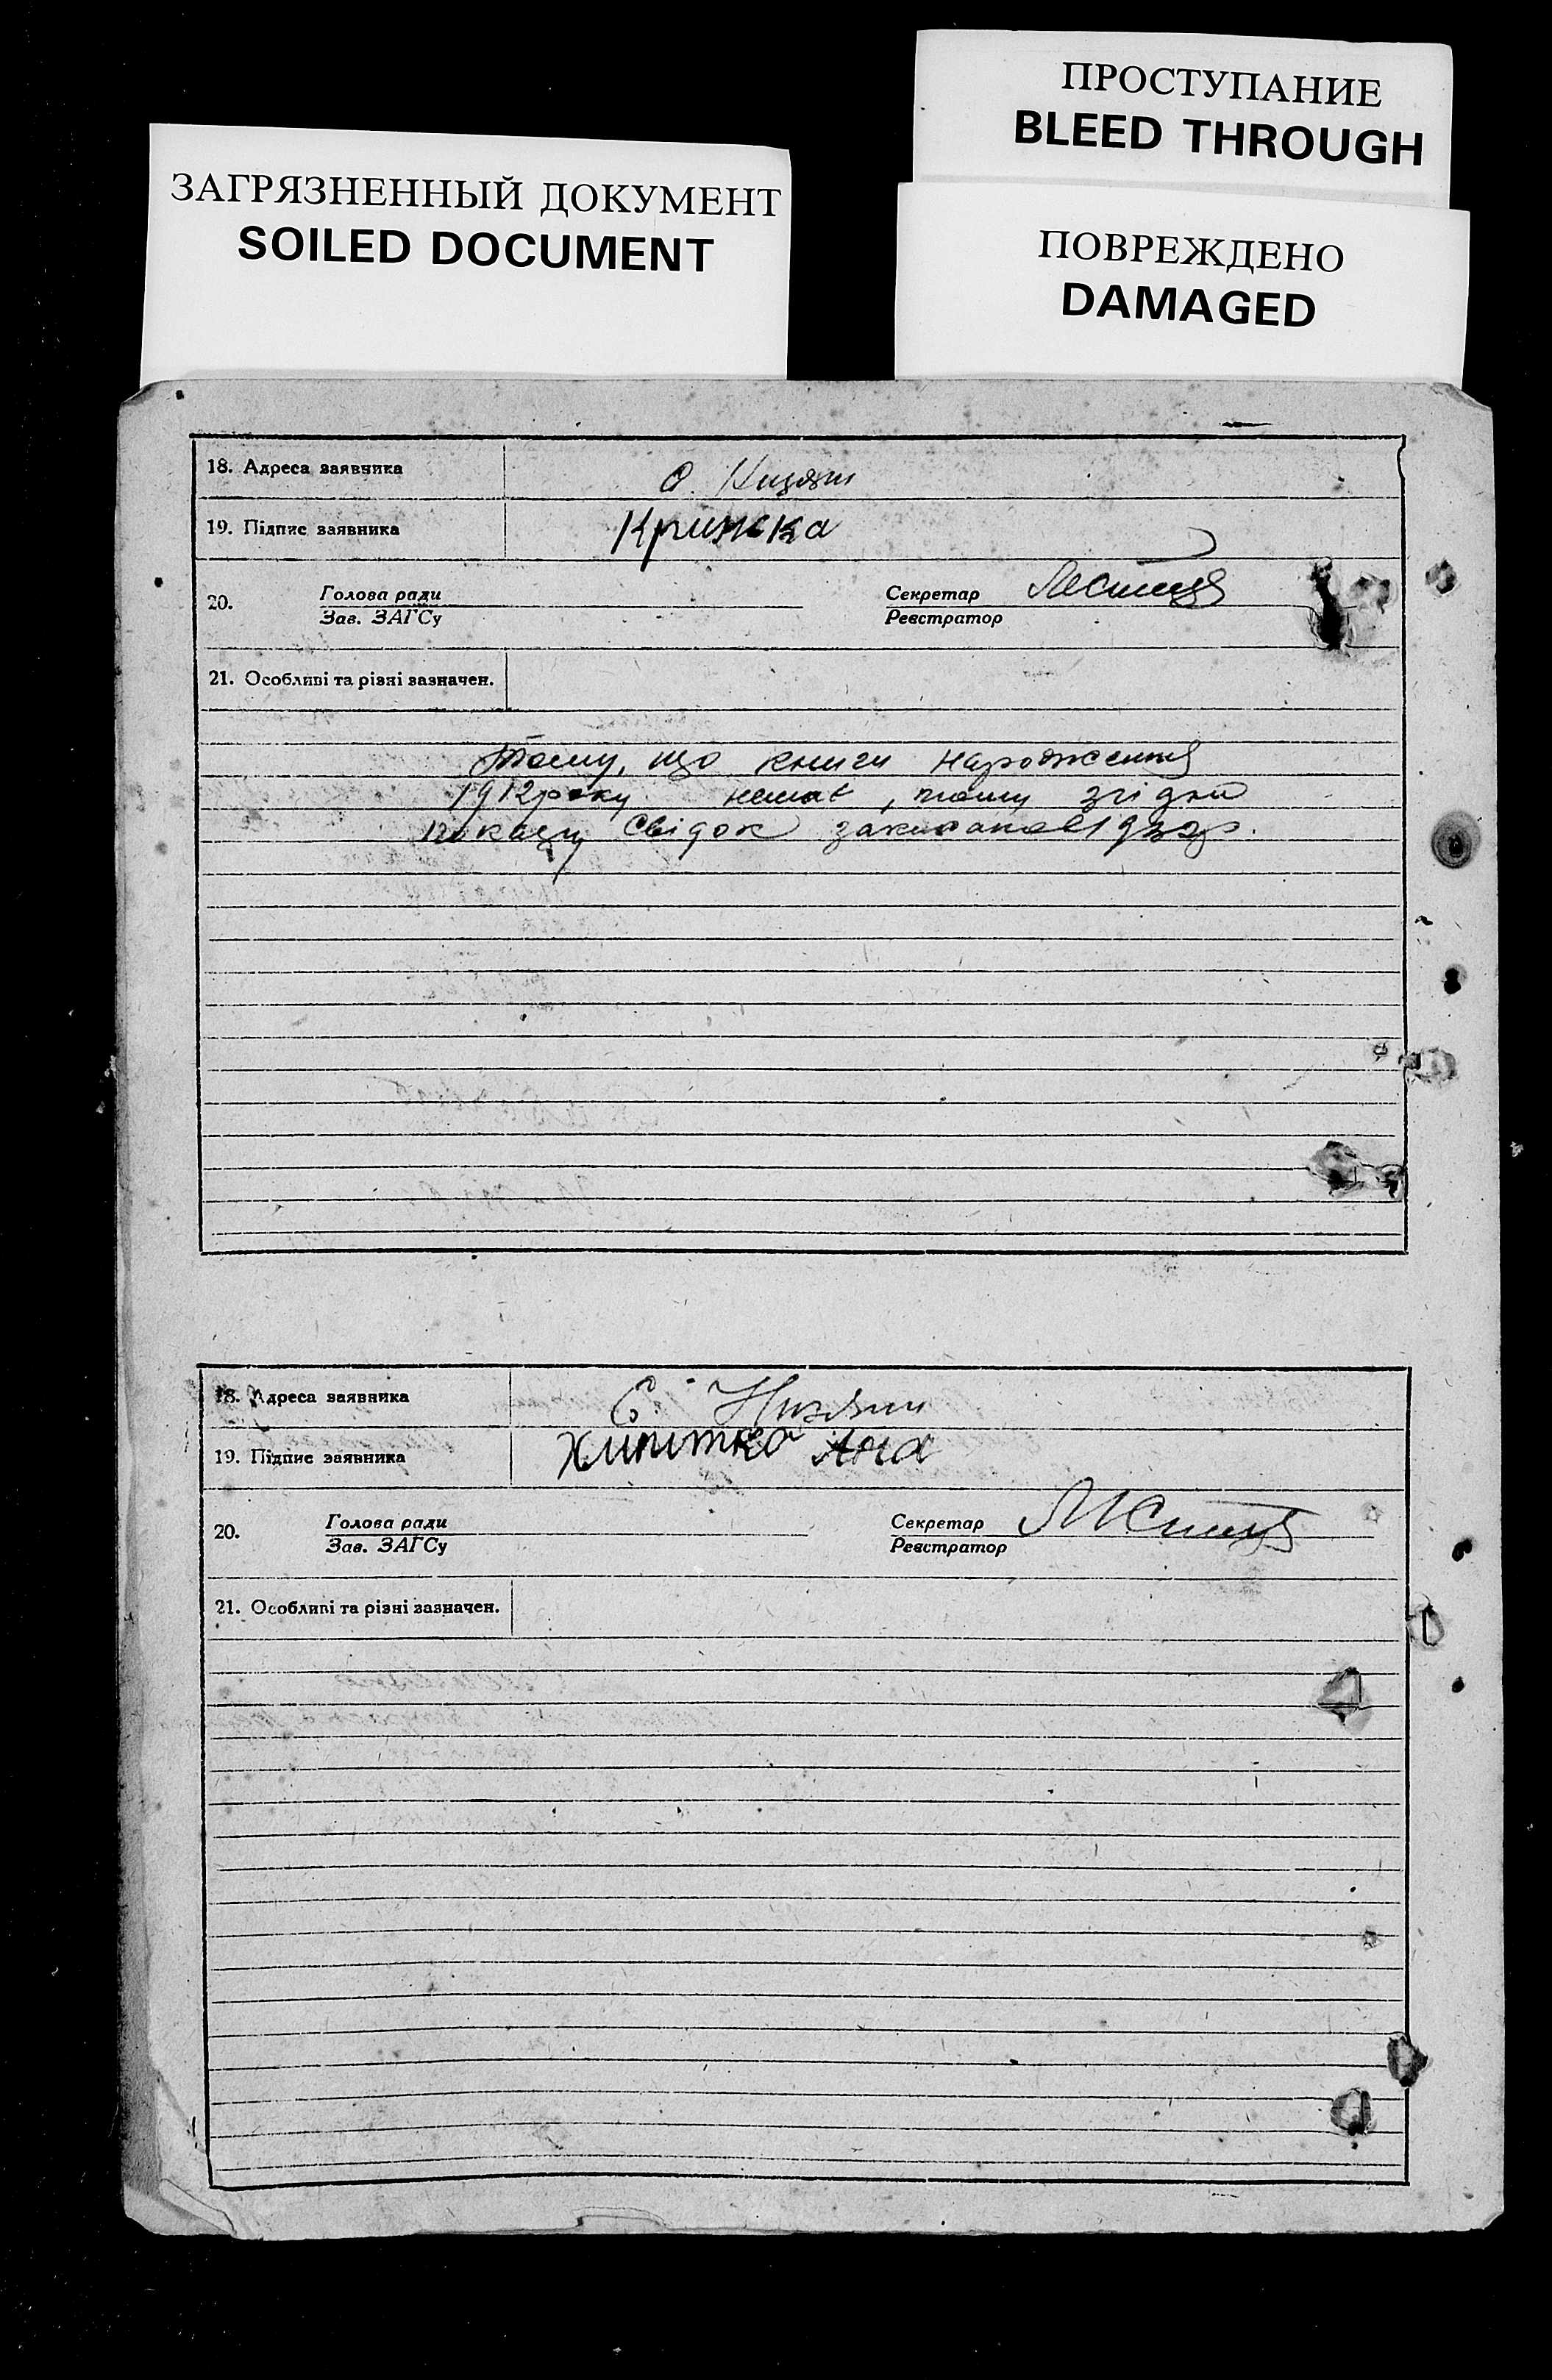 ПРОСТУПАНИЕ
BLEED THROUGH
ЗАГРЯЗНЕННЫЙ ДОКУМЕНТ
SOILED DOCUMENT
ПОВРЕЖДЕНО
DAMAGED
18. Адреса заявника
19. Підпис заявника Крижка
20. Голова ради Секретар
Зав. ЗАГСу Реєстратор
21. Особливі та різні зазначен.
Тому, що книги народження
1912 року немає, тому згідно
показу свідок
18. Адреса заявника С.
19. Підпис заявника
20. Голова ради Секретар
Зав. ЗАГСу Реєстратор
21. Особливі та різні зазначен.